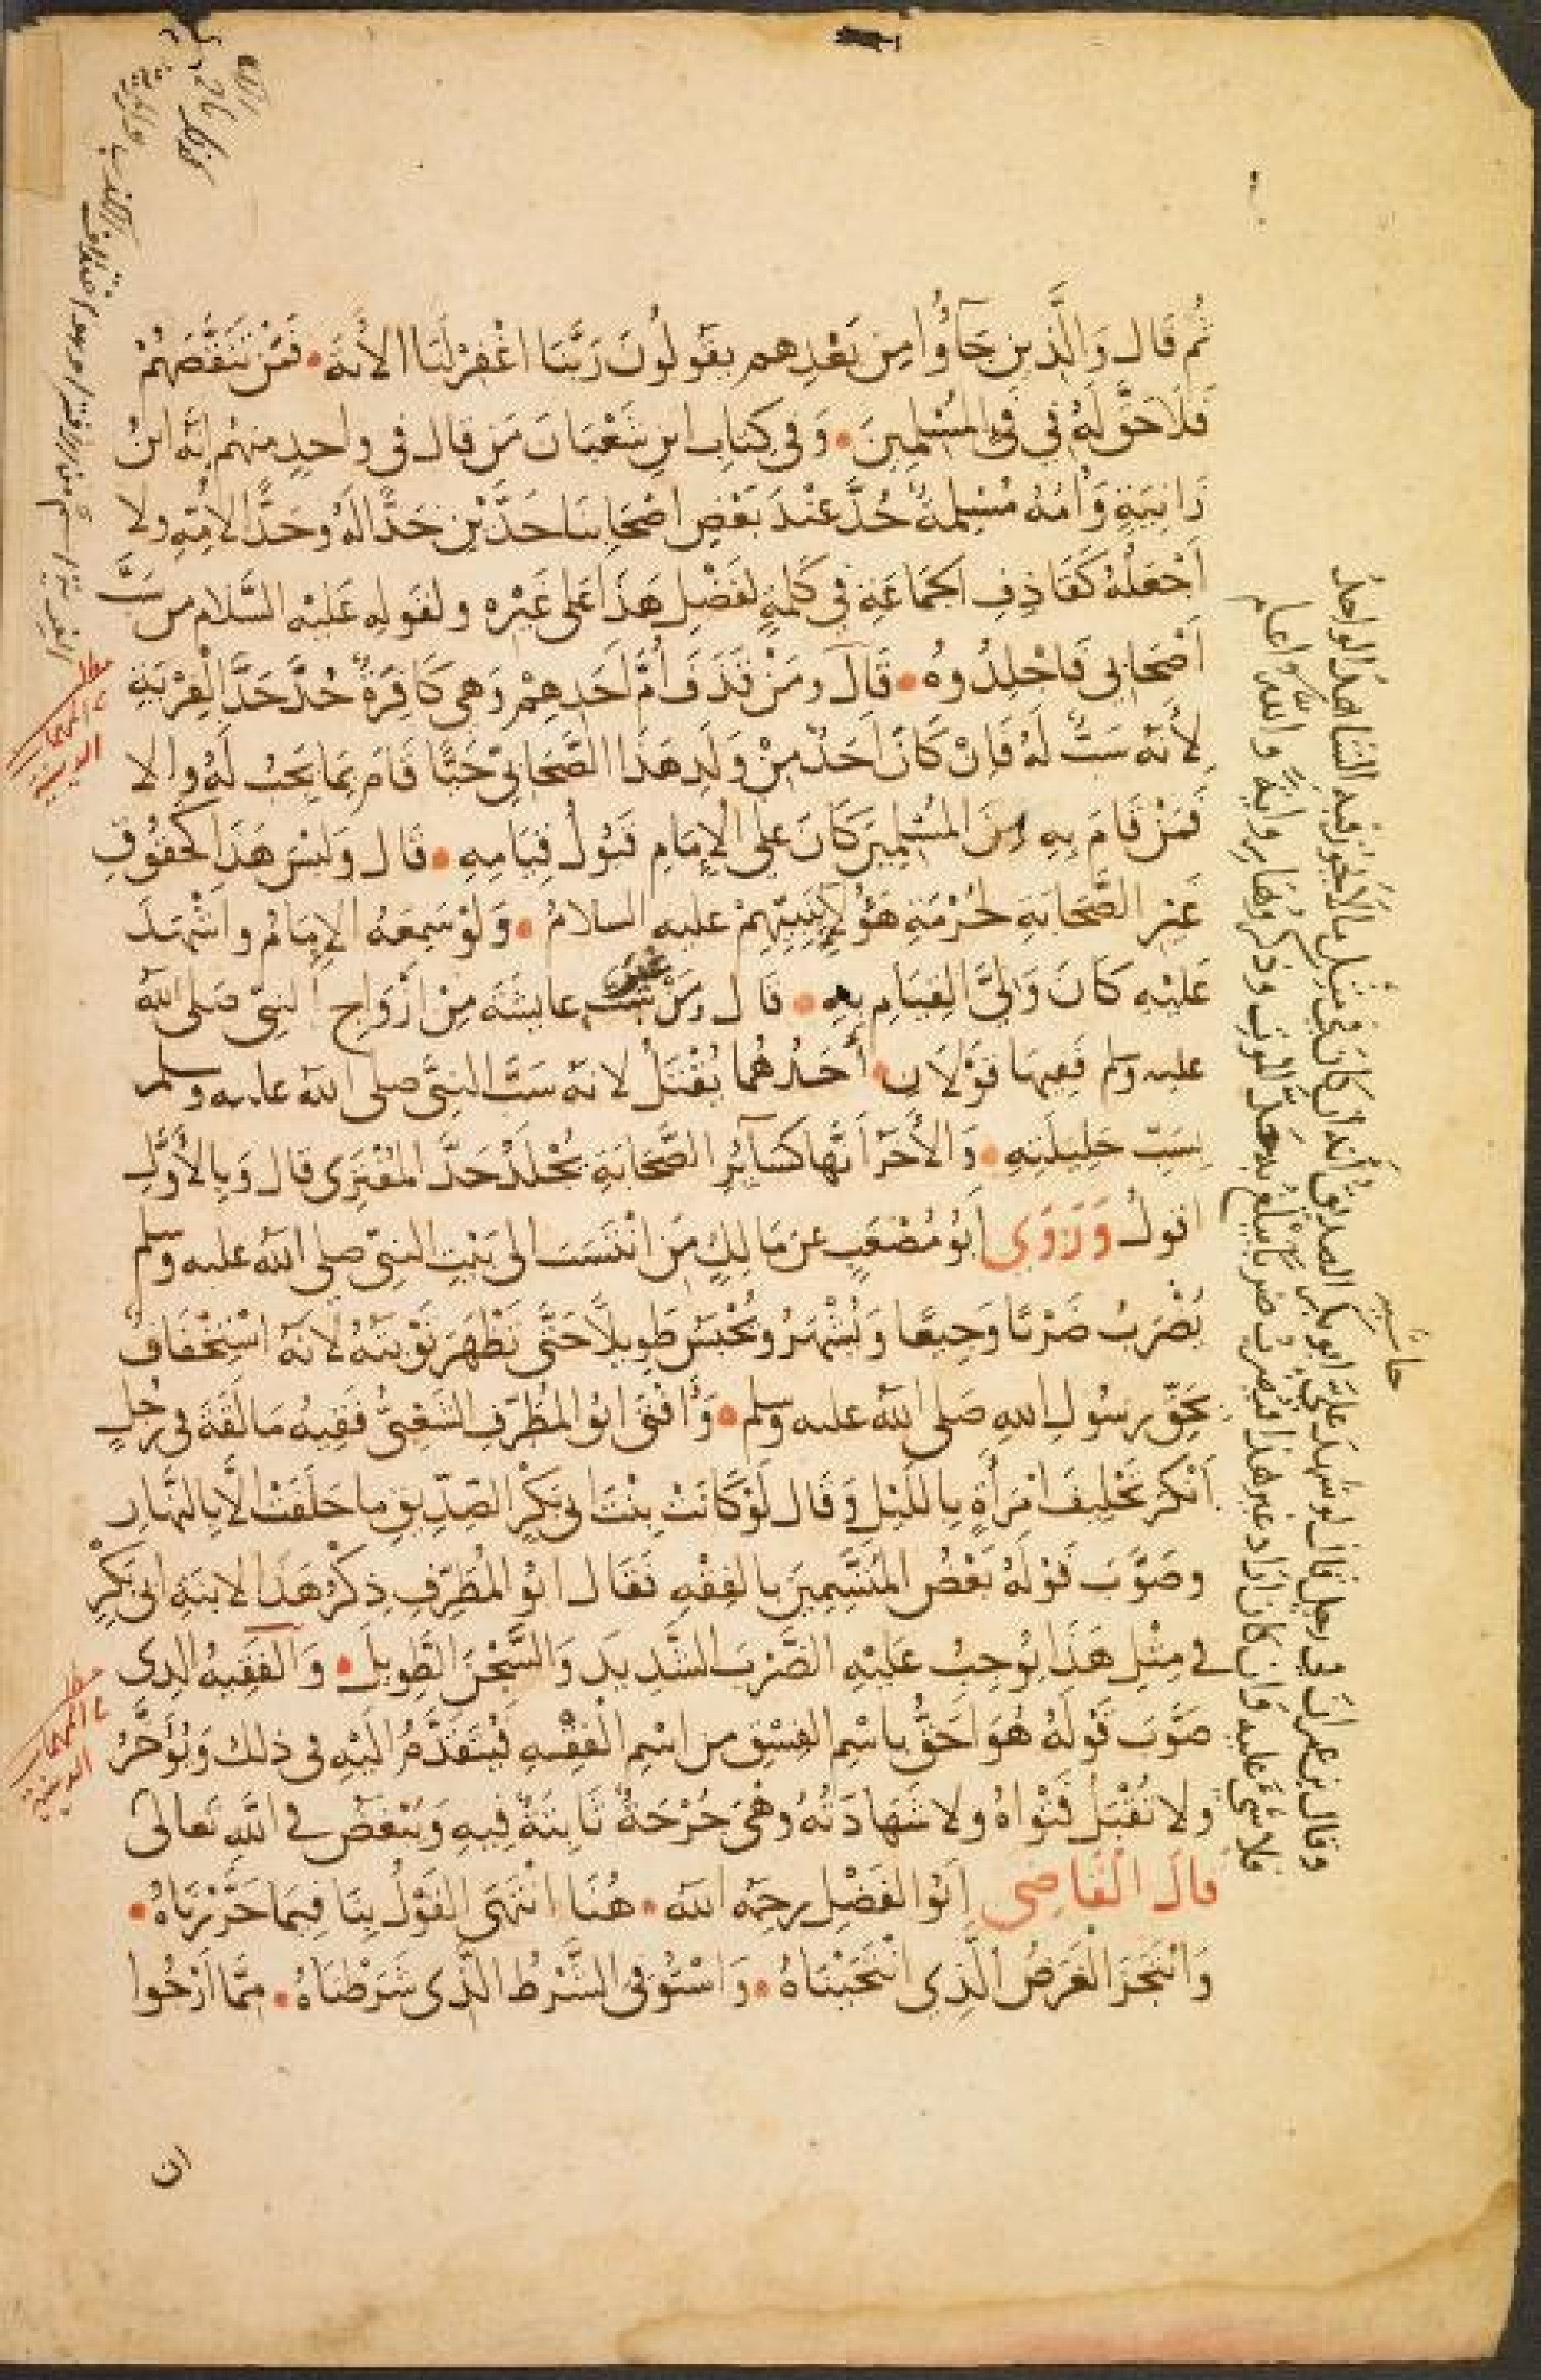 ثُم قَال وَالَّذِين جَآوُا مِن بَعْدِهم يقَولُونَ رَبَّنا اغْفِرْ لَنَا الاٰيَة • فَمَنْ تَنَقَّصَهُمْ
فَلَاحَقَّ لَهُ في فَىْءِ المُسْلِمِينَ • وَفِي كتابِ ابنِ شَعْبَانَ مَن قال في واحِدٍ منهُم اِنَّه ابنُ
زانيَةٍ وَاُمّهُ مُسْلِمةٌ حُدَّ عنْدَ بَعْضِ اصْحَابِنَا حَدَّيْنِ حَدًّا لَهُ وحَدًّا لاُمّهِ ولا
اَجْعَلُهُ كَقَاذِفِ الجَمَاعَةِ في كَلِمَةٍ لفَضْلِ هَذَا عَلى غَيْرِه ولقوله عَليْه السَّلام من سَبَّ
اَصْحَابي فَاجْلِدُوهُ • قَالَ ومَنْ قَذَفَ اُمَّ اَحَدِهِمْ وَهي كَافِرَةٌ حُدَّ حَدَّ الْفِرْيَةِ
لِأنّه سَبٌّ لَهُ فَاِنْ كَانَ اَحَدٌ مِنْ وَلَدِ هَذَا الصَّحَابِيّ حَيًّا قَامَ بِمَا يَجبُ لَهُ والا
فَمَنْ قَامَ بِهِ مِنَ المُسْلِمِينَ كَانَ عَلى الْإِمَامِ قَبُولُ قِيَامِهِ • قَال وَلَيْسَ هَذَا كَحُقُوقِ
غَيْرِ الصَّحَابَةِ لحُرْمَةِ هَؤُلَاءِ بنَبِيِّهِمْ عليه السلامُ • وَلَوْ سَمِعَهُ الإِمَامُ واَشْهَدَ
عَليْهِ كَانَ وَلِيَّ القِيَامِ بِهِ • قَال ومَنْ سَبَّ غَيْرَ عايشَةَ مِنْ اَزْوَاجِ النبيّ صَلى الله
عليه وسلم فَفِيهَا قَوْلَانِ • أَحَدُهُما يُقْتَلُ لانه سَبَّ النبيَّ صلى الله عليه وسلم
بسَبِّ حَلِيلَتِهِ • وَالْأخَرُ اَنَّها كسَآئِرِ الصَّحَابَةِ يُجْلَدُ حَدَّ المُفْتَرِى قال وَبِالأَوَّلِ
اقولُ وَرَوَى اَبُو مُصْعَبٍ عن مَالِكٍ مَن انْتَسَبَ الى بَيْتِ النبىّ صلى الله عليه وسلم
يُضْرَبُ ضَرْبًا وَجيعًا وَيُشْهَرُ ويُحْبَسُ طَوِيلًا حَتَّى تَظْهَرَ تَوْبَتُهُ لأنَّهُ اسْتِخْفَافٌ
بحَقِّ رسُولِ اللهِ صَلى الله عليه وسلم • وَاَفْتَى ابُو المُطَرِّفِ الشَّعْبيُّ فَقِيهُ مَالَقَةَ في رَجُلٍ
اَنْكَرَ تَحْلِيفَ امْرَأةٍ بِاللَّيْلِ وَقَال لَوْ كَانَتْ بِنْتَ ابى بَكْرٍ الصِّدِّيقِ ما حَلَفَتْ الّا بالنَّهَارِ
وصَوَّبَ قَوْلَهُ بَعْضُ المُتَّسِمِينَ بالفِقْهِ فَقال ابُو المُطَرِّفِ ذِكْرُ هَذَا لابنَةِ ابى بَكْرٍ
في مِثْلِ هَذَا يُوجِبُ عَلَيْهِ الضَّرْبَ الشَّدِيدَ وَالسَّجْنَ الطَّوِيلَ • وَالفَقِيهُ الذى
صَوَّبَ قَوْلَهُ هُوَ اَحَقُّ باسْمِ الفِسْقِ من اسْمِ الْفِقْهِ فَيُتَقَدَّمُ اِلَيْهِ في ذلك وَيُؤَخَّرُ
ولا تُقْبَلُ فَتْوَاهُ ولا شَهَادَتُهُ وهْىَ جُرْحَةٌ ثَابِتَةٌ فِيهِ وَيُبْغَضُ في اللَّهِ تَعالى
قَالَ الْقَاضِى اَبُو الفَضْلِ رحِمَه الله • هُنَا انْتَهَى القَوْلُ بِنَا فِيمَا حَرَّرْنَاهُ •
وَانْتَجَزَ الْغَرَضُ الَّذِي انْتَحَيْنَاهُ • وَاسْتُوفىَ الشَّرْطُ الَّذِى شَرَطْنَاهُ • ممَّا اَرْجُوا
ان
حاشية
وقال ابن عمران في رجل قال لو شهد علىّ ابو بكر الصديق أنه ان كان في مثل ما لا يجوز فيه الشاهد الواحد
فلا شئ عليه وان كان اراد غير هذا فيضرب ضربا يبلغ به حد الموت وذكروها رواية والله اعلم
مطلب
المهمات
الدينية
مطلب
المهمات
الدينية